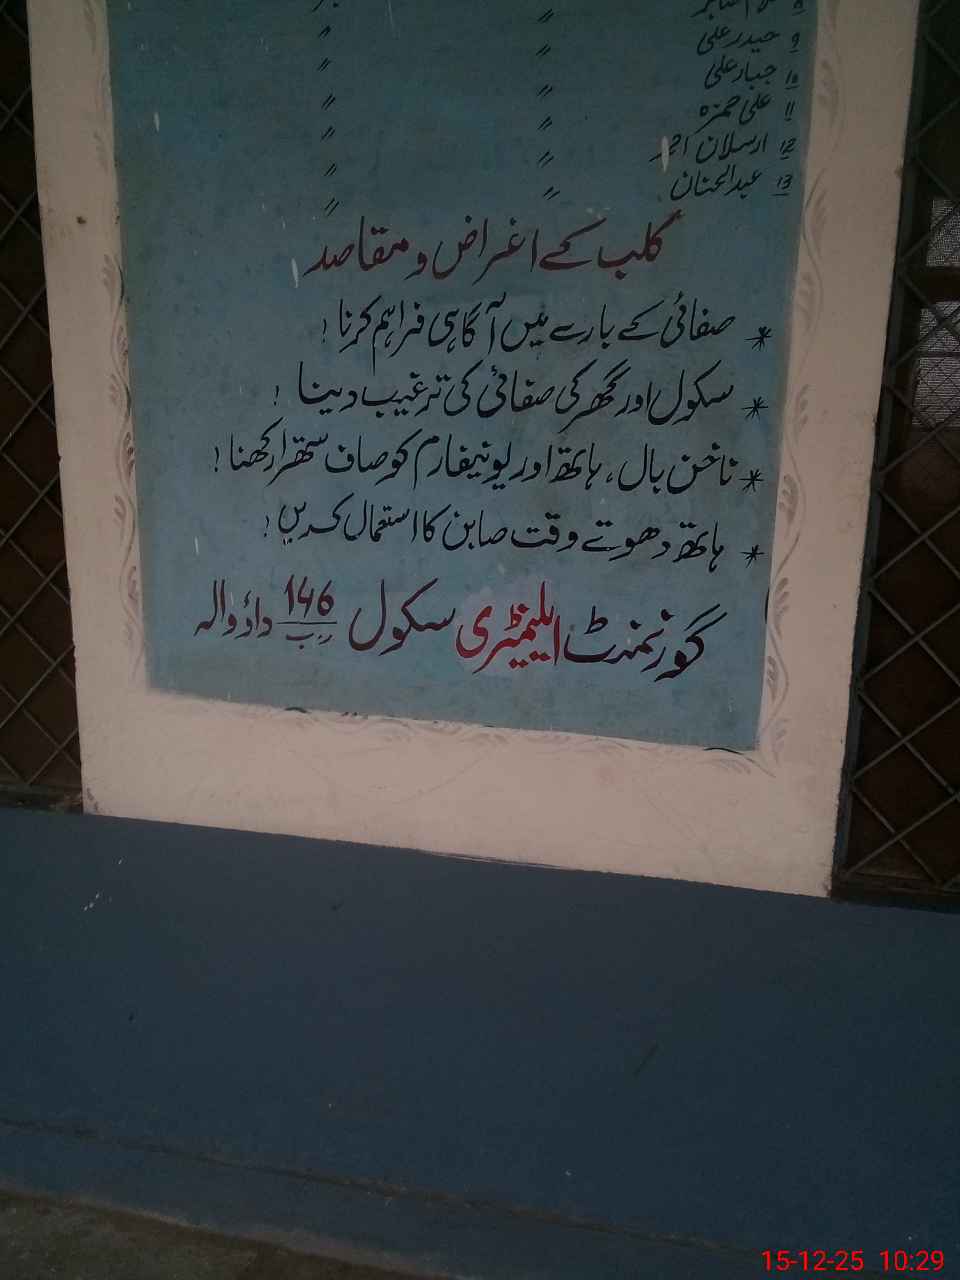 9 حیدر علی 〃 〃
10 جبار علی 〃 〃
11 علی حمزہ 〃 〃
12 ارسلان احمد 〃 〃
13 عبدالحنان 〃 〃
کلب کے اغراض و مقاصد
* صفائی کے بارے میں آگاہی فراہم کرنا !
* سکول اور گھر کی صفائی کی ترغیب دینا !
* ناخن بال، ہاتھ اور یونیفارم کو صاف ستھرا رکھنا !
* ہاتھ دھوتے وقت صابن کا استعمال کریں !
گورنمنٹ ایلیمنٹری سکول 146 ر ب داؤ والہ
15-12-25 10:29